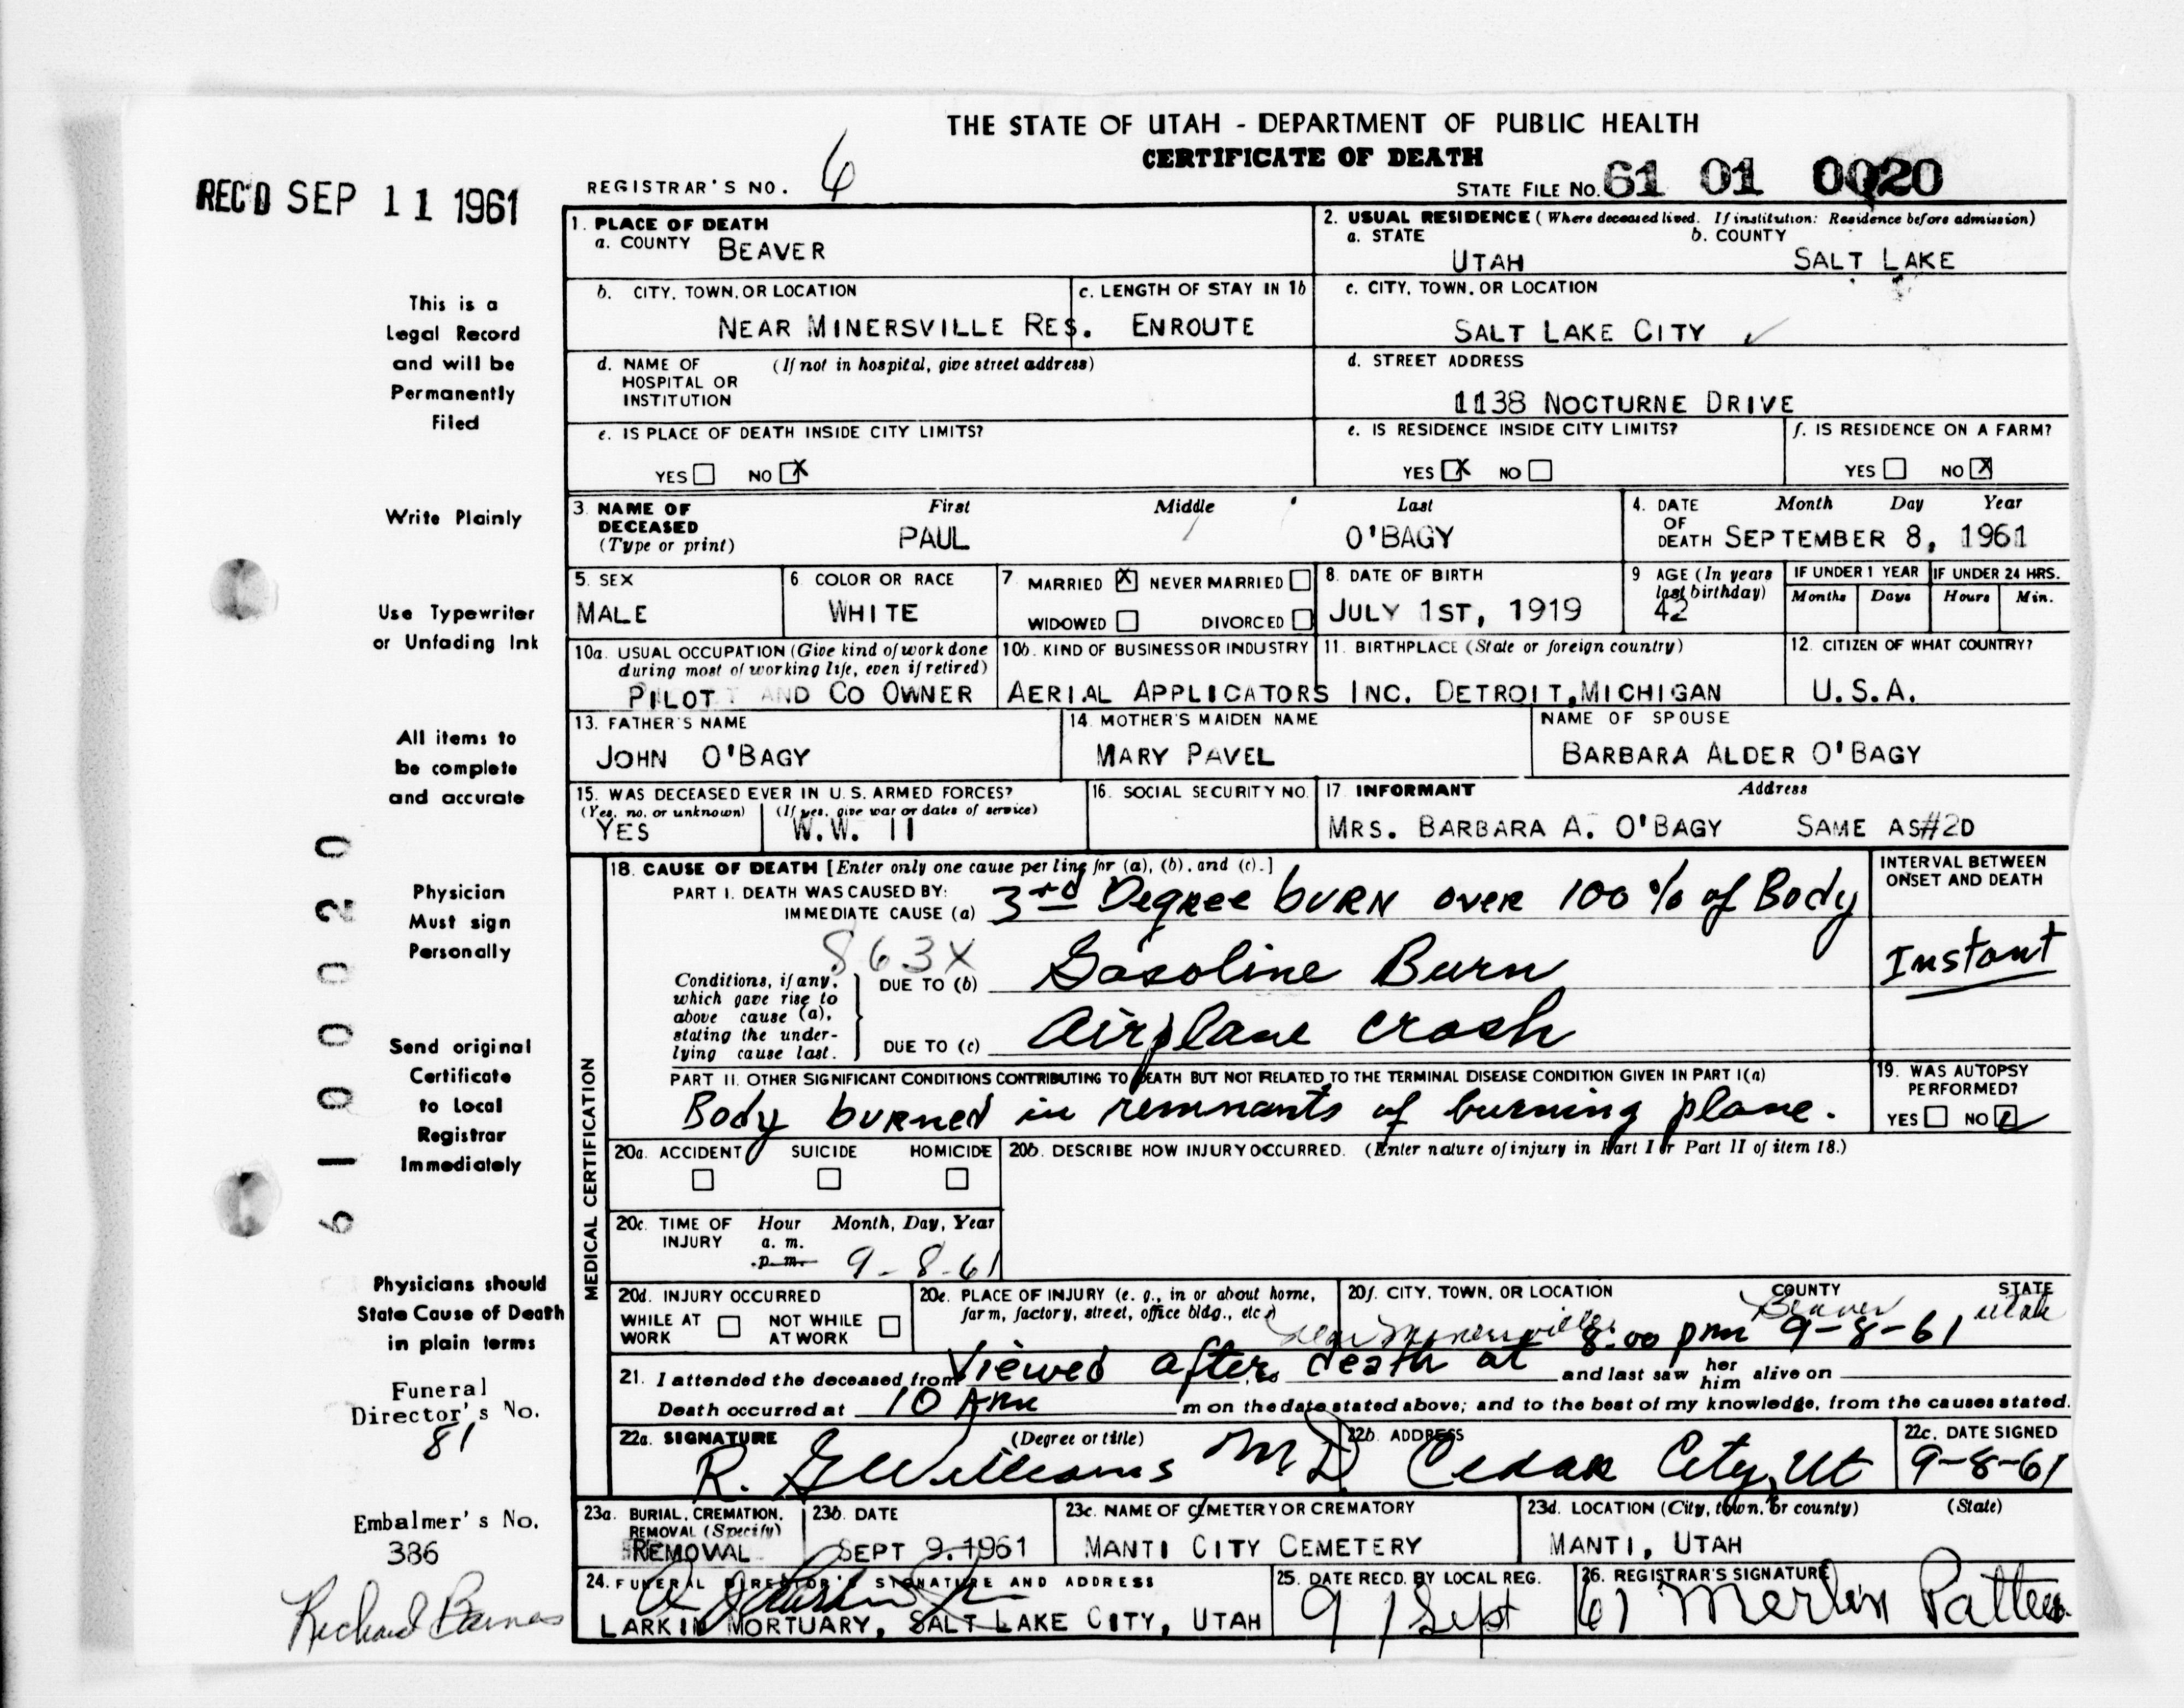 THE STATE OF UTAH - DEPARTMENT OF PUBLIC HEALTH
CERTIFICATE OF DEATH
REC'D SEP 11 1961
REGISTRAR'S NO. 6
STATE FILE No. 61 01 0020
1. PLACE OF DEATH
a. COUNTY BEAVER
2. USUAL RESIDENCE (Where deceased lived. If institution: Residence before admission)
a. STATE b. COUNTY
UTAH SALT LAKE
b. CITY, TOWN, OR LOCATION
NEAR MINERSVILLE RES.
c. LENGTH OF STAY IN 1b
ENROUTE
c. CITY, TOWN, OR LOCATION
SALT LAKE CITY
d. NAME OF HOSPITAL OR INSTITUTION (If not in hospital, give street address)
d. STREET ADDRESS
1138 NOCTURNE DRIVE
e. IS PLACE OF DEATH INSIDE CITY LIMITS?
YES NO X
e. IS RESIDENCE INSIDE CITY LIMITS?
YES X NO
f. IS RESIDENCE ON A FARM?
YES NO X
3. NAME OF DECEASED (Type or print)
First Middle Last
PAUL O'BAGY
4. DATE OF DEATH Month Day Year
SEPTEMBER 8, 1961
5. SEX
MALE
6. COLOR OR RACE
WHITE
7. MARRIED X NEVER MARRIED
WIDOWED DIVORCED
8. DATE OF BIRTH
JULY 1ST, 1919
9 AGE (In years last birthday)
42
IF UNDER 1 YEAR IF UNDER 24 HRS.
Months Days Hours Min.
10a. USUAL OCCUPATION (Give kind of work done during most of working life, even if retired)
PILOT AND CO OWNER
10b. KIND OF BUSINESS OR INDUSTRY
AERIAL APPLICATORS INC.
11. BIRTHPLACE (State or foreign country)
DETROIT, MICHIGAN
12. CITIZEN OF WHAT COUNTRY?
U.S.A.
13. FATHER'S NAME
JOHN O'BAGY
14. MOTHER'S MAIDEN NAME
MARY PAVEL
NAME OF SPOUSE
BARBARA ALDER O'BAGY
15. WAS DECEASED EVER IN U.S. ARMED FORCES?
(Yes, no, or unknown) (If yes, give war or dates of service)
YES W.W. II
16. SOCIAL SECURITY NO.
17 INFORMANT Address
MRS. BARBARA A. O'BAGY SAME AS#2D
MEDICAL CERTIFICATION
18. CAUSE OF DEATH [Enter only one cause per line for (a), (b), and (c).]
INTERVAL BETWEEN ONSET AND DEATH
PART I. DEATH WAS CAUSED BY:
IMMEDIATE CAUSE (a) 3rd Degree burn over 100% of Body
863X
Conditions, if any, which gave rise to above cause (a), stating the underlying cause last.
DUE TO (b) Gasoline Burn
Instant
DUE TO (c) Airplane crash
PART II. OTHER SIGNIFICANT CONDITIONS CONTRIBUTING TO DEATH BUT NOT RELATED TO THE TERMINAL DISEASE CONDITION GIVEN IN PART I(a)
Body burned in remnants of burning plane.
19. WAS AUTOPSY PERFORMED?
YES NO
20a. ACCIDENT SUICIDE HOMICIDE
20b. DESCRIBE HOW INJURY OCCURRED. (Enter nature of injury in Part I or Part II of item 18.)
20c. TIME OF INJURY Hour Month, Day, Year
a. m.
p. m. 9-8-61
20d. INJURY OCCURRED
WHILE AT WORK NOT WHILE AT WORK
20e. PLACE OF INJURY (e. g., in or about home, farm, factory, street, office bldg., etc.)
20f. CITY, TOWN, OR LOCATION COUNTY STATE
near Minersville Beaver Utah
8:00 pm 9-8-61
21. I attended the deceased from Viewed after death at and last saw her him alive on
Death occurred at 10 AM m on the date stated above; and to the best of my knowledge, from the causes stated.
22a. SIGNATURE (Degree or title)
R. G Williams MD
22b. ADDRESS
Cedar City, Ut
22c. DATE SIGNED
9-8-61
23a. BURIAL, CREMATION, REMOVAL (Specify)
REMOVAL
23b. DATE
SEPT 9, 1961
23c. NAME OF CEMETERY OR CREMATORY
MANTI CITY CEMETERY
23d. LOCATION (City, town, or county) (State)
MANTI, UTAH
24. FUNERAL DIRECTOR'S SIGNATURE AND ADDRESS
LARKIN MORTUARY, SALT LAKE CITY, UTAH
25. DATE RECD. BY LOCAL REG.
9 Sept 61
26. REGISTRAR'S SIGNATURE
Merlin
This is a
Legal Record
and will be
Permanently
Filed
Write Plainly
Use Typewriter
or Unfading Ink
All items to
be complete
and accurate
Physician
Must sign
Personally
Send original
Certificate
to Local
Registrar
Immediately
Physicians should
State Cause of Death
in plain terms
Funeral
Director's No.
81
Embalmer's No.
386
Richard Barnes
61000020